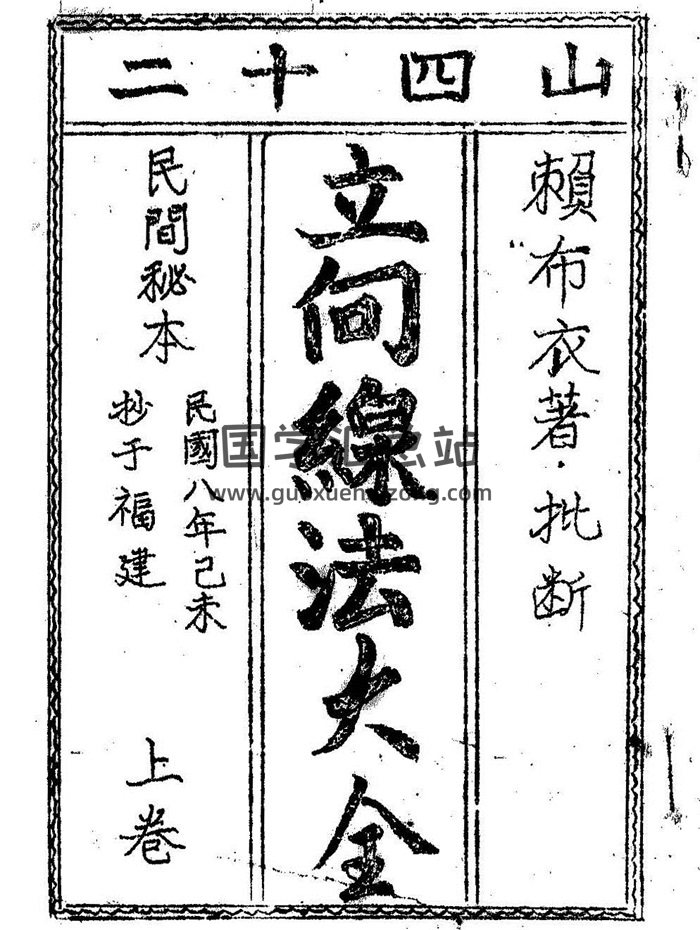 二十四山
賴布衣著·批断
立向線法大全
民間秘本
民國八年己未
抄于福建
上卷
国学汇总站
www.guoxuehuizong.com